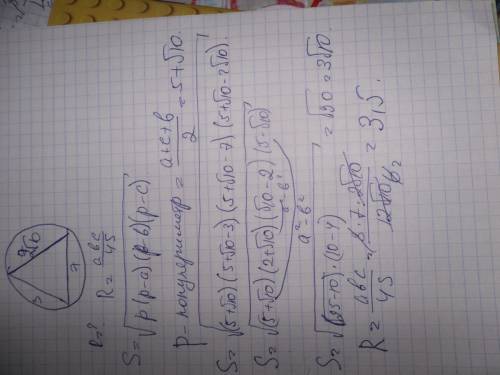 2√10
3
7
R=?
R = abc / 4S
S = √p(p-a)(p-b)(p-c)
p - полупериметр = a+c+b / 2 = 5+√10
S = √(5+√10)(5+√10-3)(5+√10-7)(5+√10-2√10)
S = √(5+√10)(2+√10)(√10-2)(5-√10)
a²-b²
a²-b²
S = √(25-10)·(10-4) = √90 = 3√10
R = abc / 4S = 3·7·2√10 / 12√10 = 3,5